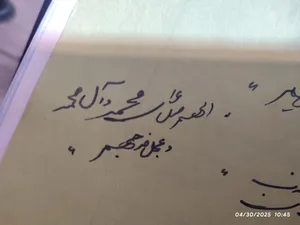 اللهم صل علی محمد و آل محمد
و عجل فرجهم "
04/30/2025 10:45